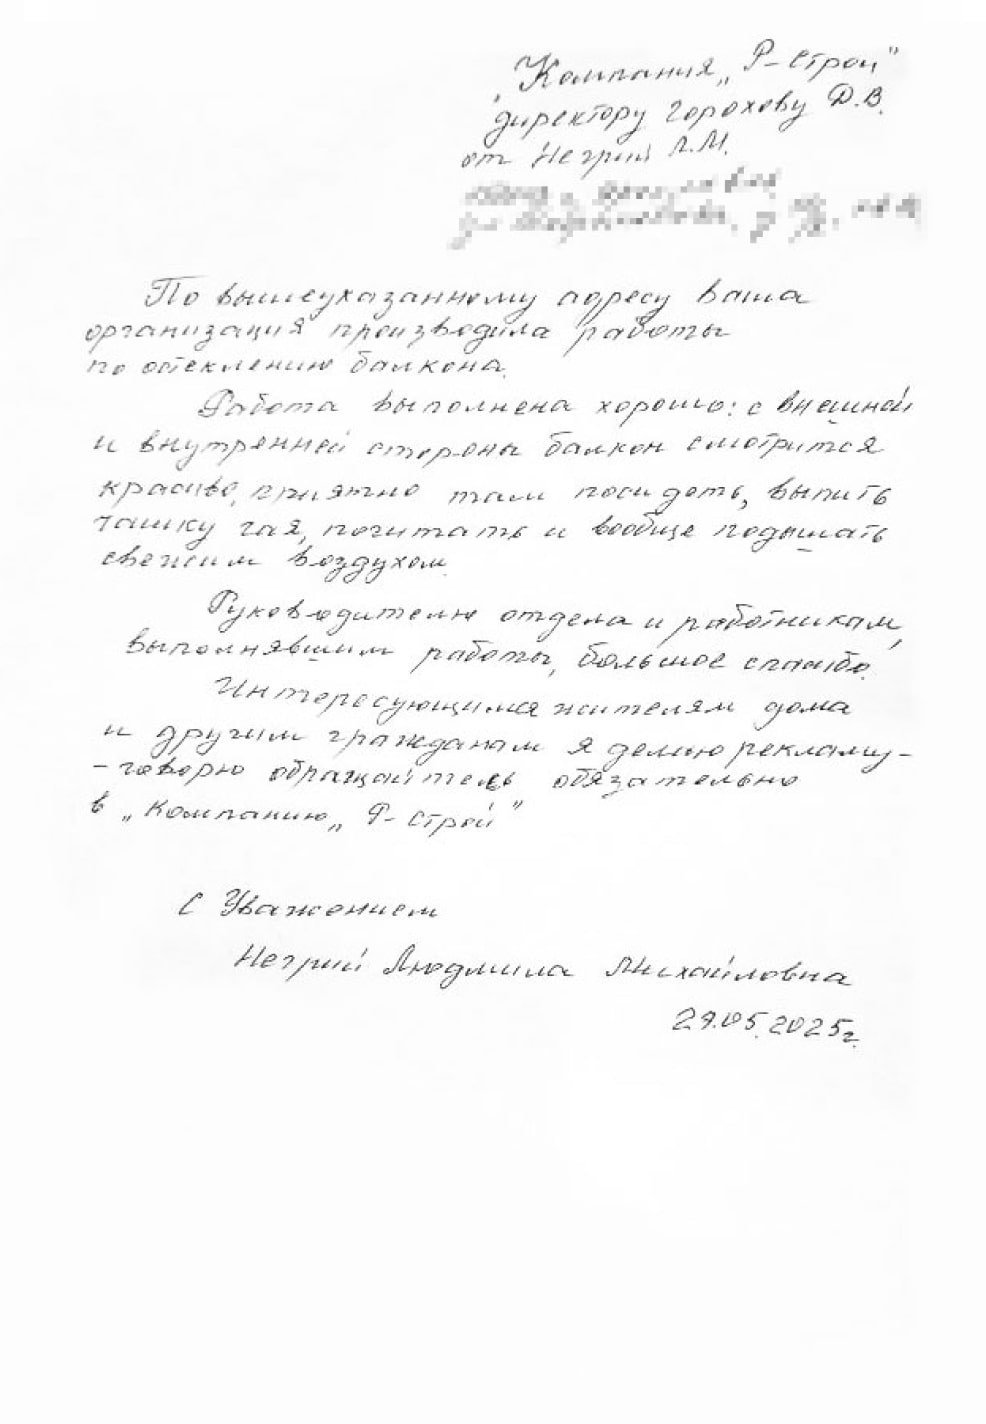 "Компания „Р-Строй"
директору Горохову Д.В.
от Негрий Л.М.
По вышеуказанному адресу Ваша
организация производила работы
по остеклению балкона.
Работа выполнена хорошо: с внешней
и внутренней стороны балкон смотрится
красиво, приятно там посидеть, выпить
чашку чая, почитать и вообще подышать
свежим воздухом.
Руководителю отдела и работникам,
выполнявшим работы, большое спасибо.
Интересующимся жителям дома
и другим гражданам я делаю рекламу-
-говорю обращайтесь обязательно
в „Компанию „Р-Строй"
С Уважением
Негрий Людмила Михайловна
29.05.2025г.